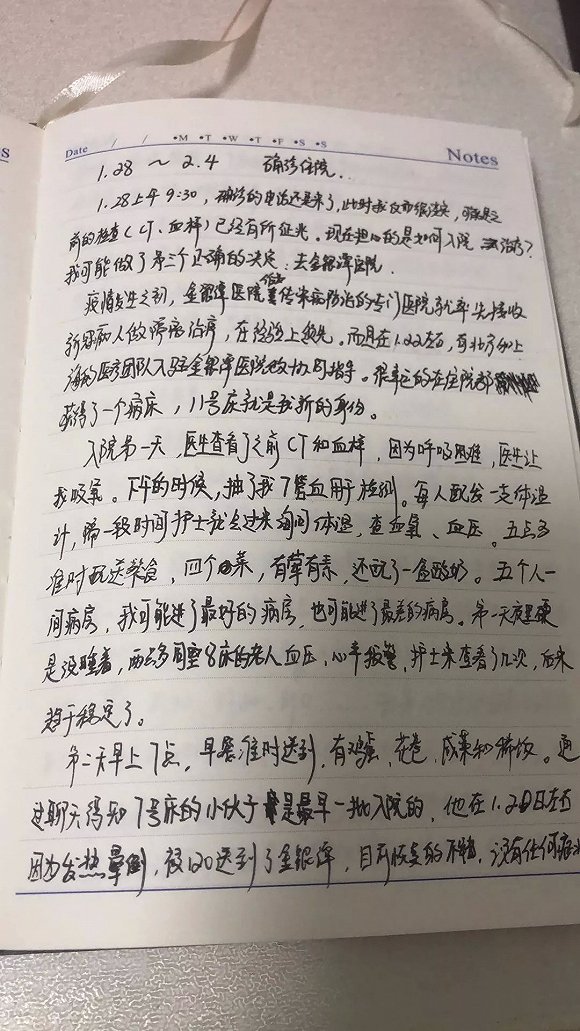 s
Date / / •M •T •W •T •F •S •S Notes
1.28 ～ 2.4 确诊住院..
1.28上午9:30，确诊的电话还是来了，此时我反而很淡定，可能是之
前的检查（CT、血样）已经有所征兆。现在担心的是如何入院治疗？
我可能做了第三个正确的决定：去金银潭医院.
疫情发生之初，金银潭医院作为传染病防治的专门医院就率先接收
新冠病人做隔离治疗，在经验上领先。而且在1.22左右，有北京和上
海的医疗团队入驻金银潭医院做协同指导。很幸运的在住院部
获得了一个病床，11号床就是我新的身份。
入院第一天，医生查看了之前CT和血样，因为呼吸困难，医生让
我吸氧。下午的时候，抽了我7管血用于检测。每人配发一支体温
计，隔一段时间护士就会过来询问体温，查血氧、血压。五点多
准时配送餐食，四个菜，有荤有素，还配了一盒酸奶。五个人一
间病房，我可能进了最好的病房，也可能进了最差的病房。第一天夜里硬
是没睡着，两点多同室8床的老人血压、心率报警，护士来查看了几次，后来
趋于稳定了。
第二天早上7点，早餐准时送到，有鸡蛋、花卷、咸菜和稀饭。通
过聊天得知7号床的小伙子是最早一批入院的，他在1.20日左右
因为发热晕倒，被120送到了金银潭，目前恢复的不错，没有任何症状